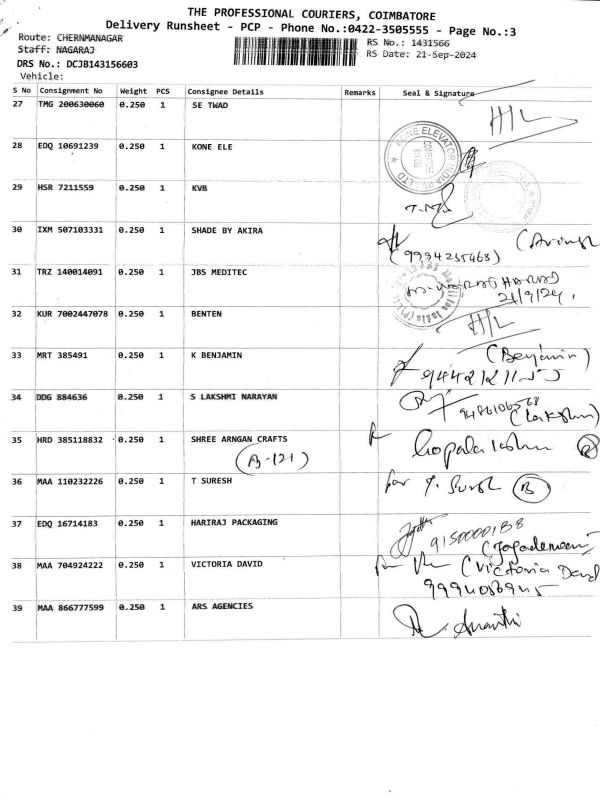 THE PROFESSIONAL COURIERS, COIMBATORE
Delivery Runsheet - PCP - Phone No.:0422-3505555 - Page No.:3
Route: CHERNMANAGAR
RS No.: 1431566
Staff: NAGARAJ
RS Date: 21-Sep-2024
DRS No.: DCJB143156603
Vehicle:
S No Consignment No Weight PCS Consignee Details Remarks Seal & Signature
27 TMG 200630060 0.250 1 SE TWAD H/L
28 EDQ 10691239 0.250 1 KONE ELE
KONE ELEVATOR INDIA PVT. LTD
29 HSR 7211559 0.250 1 KVB
30 IXM 507103331 0.250 1 SHADE BY AKIRA
31 TRZ 140014091 0.250 1 JBS MEDITEC
21/9/24
32 KUR 7002447078 0.250 1 BENTEN H/L
33 MRT 385491 0.250 1 K BENJAMIN (Benjamin)
34 DDG 884636 0.250 1 S LAKSHMI NARAYAN
9486106568
35 HRD 385118832 0.250 1 SHREE ARNGAN CRAFTS
36 MAA 110232226 0.250 1 T SURESH for T. Suresh B
37 EDQ 16714183 0.250 1 HARIRAJ PACKAGING
38 MAA 704924222 0.250 1 VICTORIA DAVID (Victoria David
39 MAA 866777599 0.250 1 ARS AGENCIES